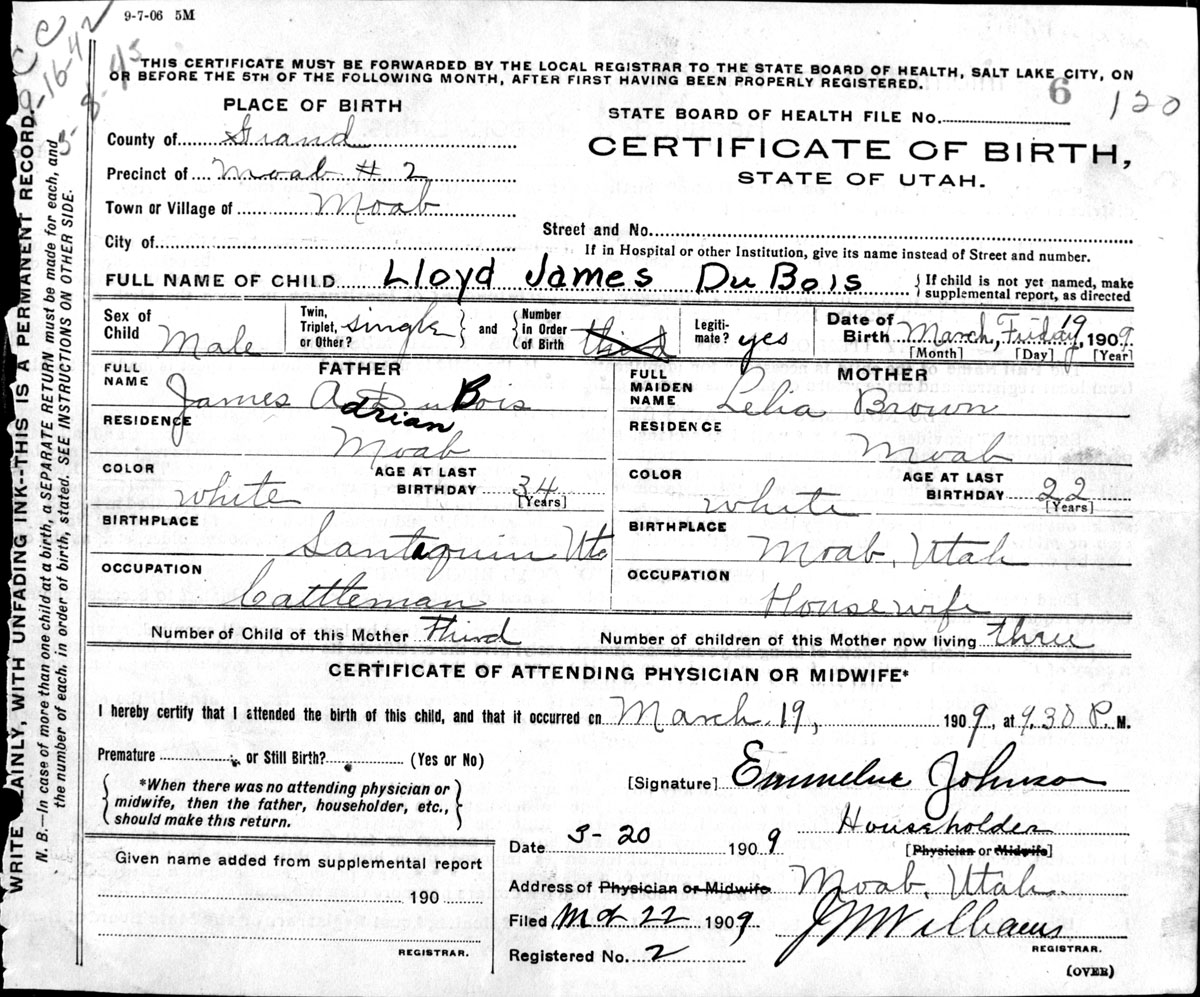 9-7-06 5M
C C
-16-42
5-8-45
THIS CERTIFICATE MUST BE FORWARDED BY THE LOCAL REGISTRAR TO THE STATE BOARD OF HEALTH, SALT LAKE CITY, ON
OR BEFORE THE 5TH OF THE FOLLOWING MONTH, AFTER FIRST HAVING BEEN PROPERLY REGISTERED.
6 120
PLACE OF BIRTH
STATE BOARD OF HEALTH FILE No.
County of Grand
CERTIFICATE OF BIRTH,
Precinct of Moab # 2
STATE OF UTAH.
Town or Village of Moab
Street and No.
City of
If in Hospital or other Institution, give its name instead of Street and number.
FULL NAME OF CHILD Lloyd James DuBois { If child is not yet named, make
supplemental report, as directed
Sex of Child Male
Twin, Triplet, or Other? single } and { Number In Order of Birth third
Legiti-mate? yes
Date of Birth March, Friday 19, 1909
[Month] [Day] [Year]
FATHER
FULL NAME James Adrian DuBois
RESIDENCE Moab
COLOR white
AGE AT LAST BIRTHDAY 34 [Years]
BIRTHPLACE Santaquin Uta
OCCUPATION Cattleman
MOTHER
FULL MAIDEN NAME Lelia Brown
RESIDENCE Moab
COLOR white
AGE AT LAST BIRTHDAY 22 [Years]
BIRTHPLACE Moab, Utah
OCCUPATION Housewife
Number of Child of this Mother Third Number of children of this Mother now living three
CERTIFICATE OF ATTENDING PHYSICIAN OR MIDWIFE*
I hereby certify that I attended the birth of this child, and that it occurred on March 19, 1909, at 9.30 P. M.
Premature or Still Birth? (Yes or No)
{ *When there was no attending physician or
midwife, then the father, householder, etc.,
should make this return. }
[Signature] Emmeline Johnson
Householder
[Physician or Midwife]
Date 3-20 1909
Address of Physician or Midwife Moab, Utah.
Filed Mch 22 1909 J M Williams
REGISTRAR.
Registered No. 2
(OVER)
Given name added from supplemental report
190
REGISTRAR.
WRITE PLAINLY, WITH UNFADING INK--THIS IS A PERMANENT RECORD.
N. B.—In case of more than one child at a birth, a SEPARATE RETURN must be made for each, and
the number of each, in order of birth, stated. SEE INSTRUCTIONS ON OTHER SIDE.